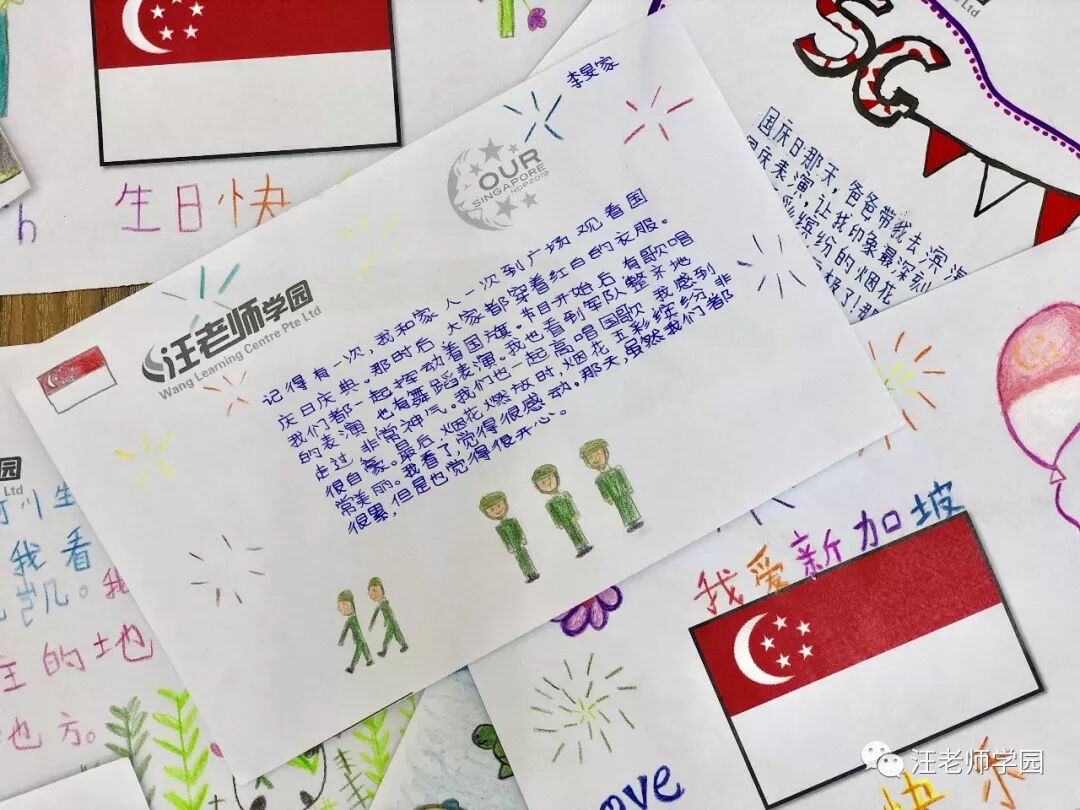 生日快
h
SG
Ltd
国庆日那天,爸爸带我去滨
国庆表演,让我印象最深刻
彩缤纷的烟花
极了!
李旻家
OUR
SINGAPORE
NDP2019
汪老师学园
Wang Learning Centre Pte Ltd
记得有一次,我和家人一次到广场观看国
庆日庆典。那时后大家都穿着红白的衣服。
我们都一起挥动着国旗。节目开始后有歌唱
的表演也有舞蹈表演。我也看到军队整齐地
走过非常神气。我们也一起高唱国歌我感到
很自豪。最后烟花燃放时,烟花五彩缤纷非
常美丽。我看了,觉得很感动。那天,虽然我们都
很累,但是也觉得很开心。
园
Ltd
川生
我看
的地
方。
我爱新加坡
love
快乐
汪老师学园